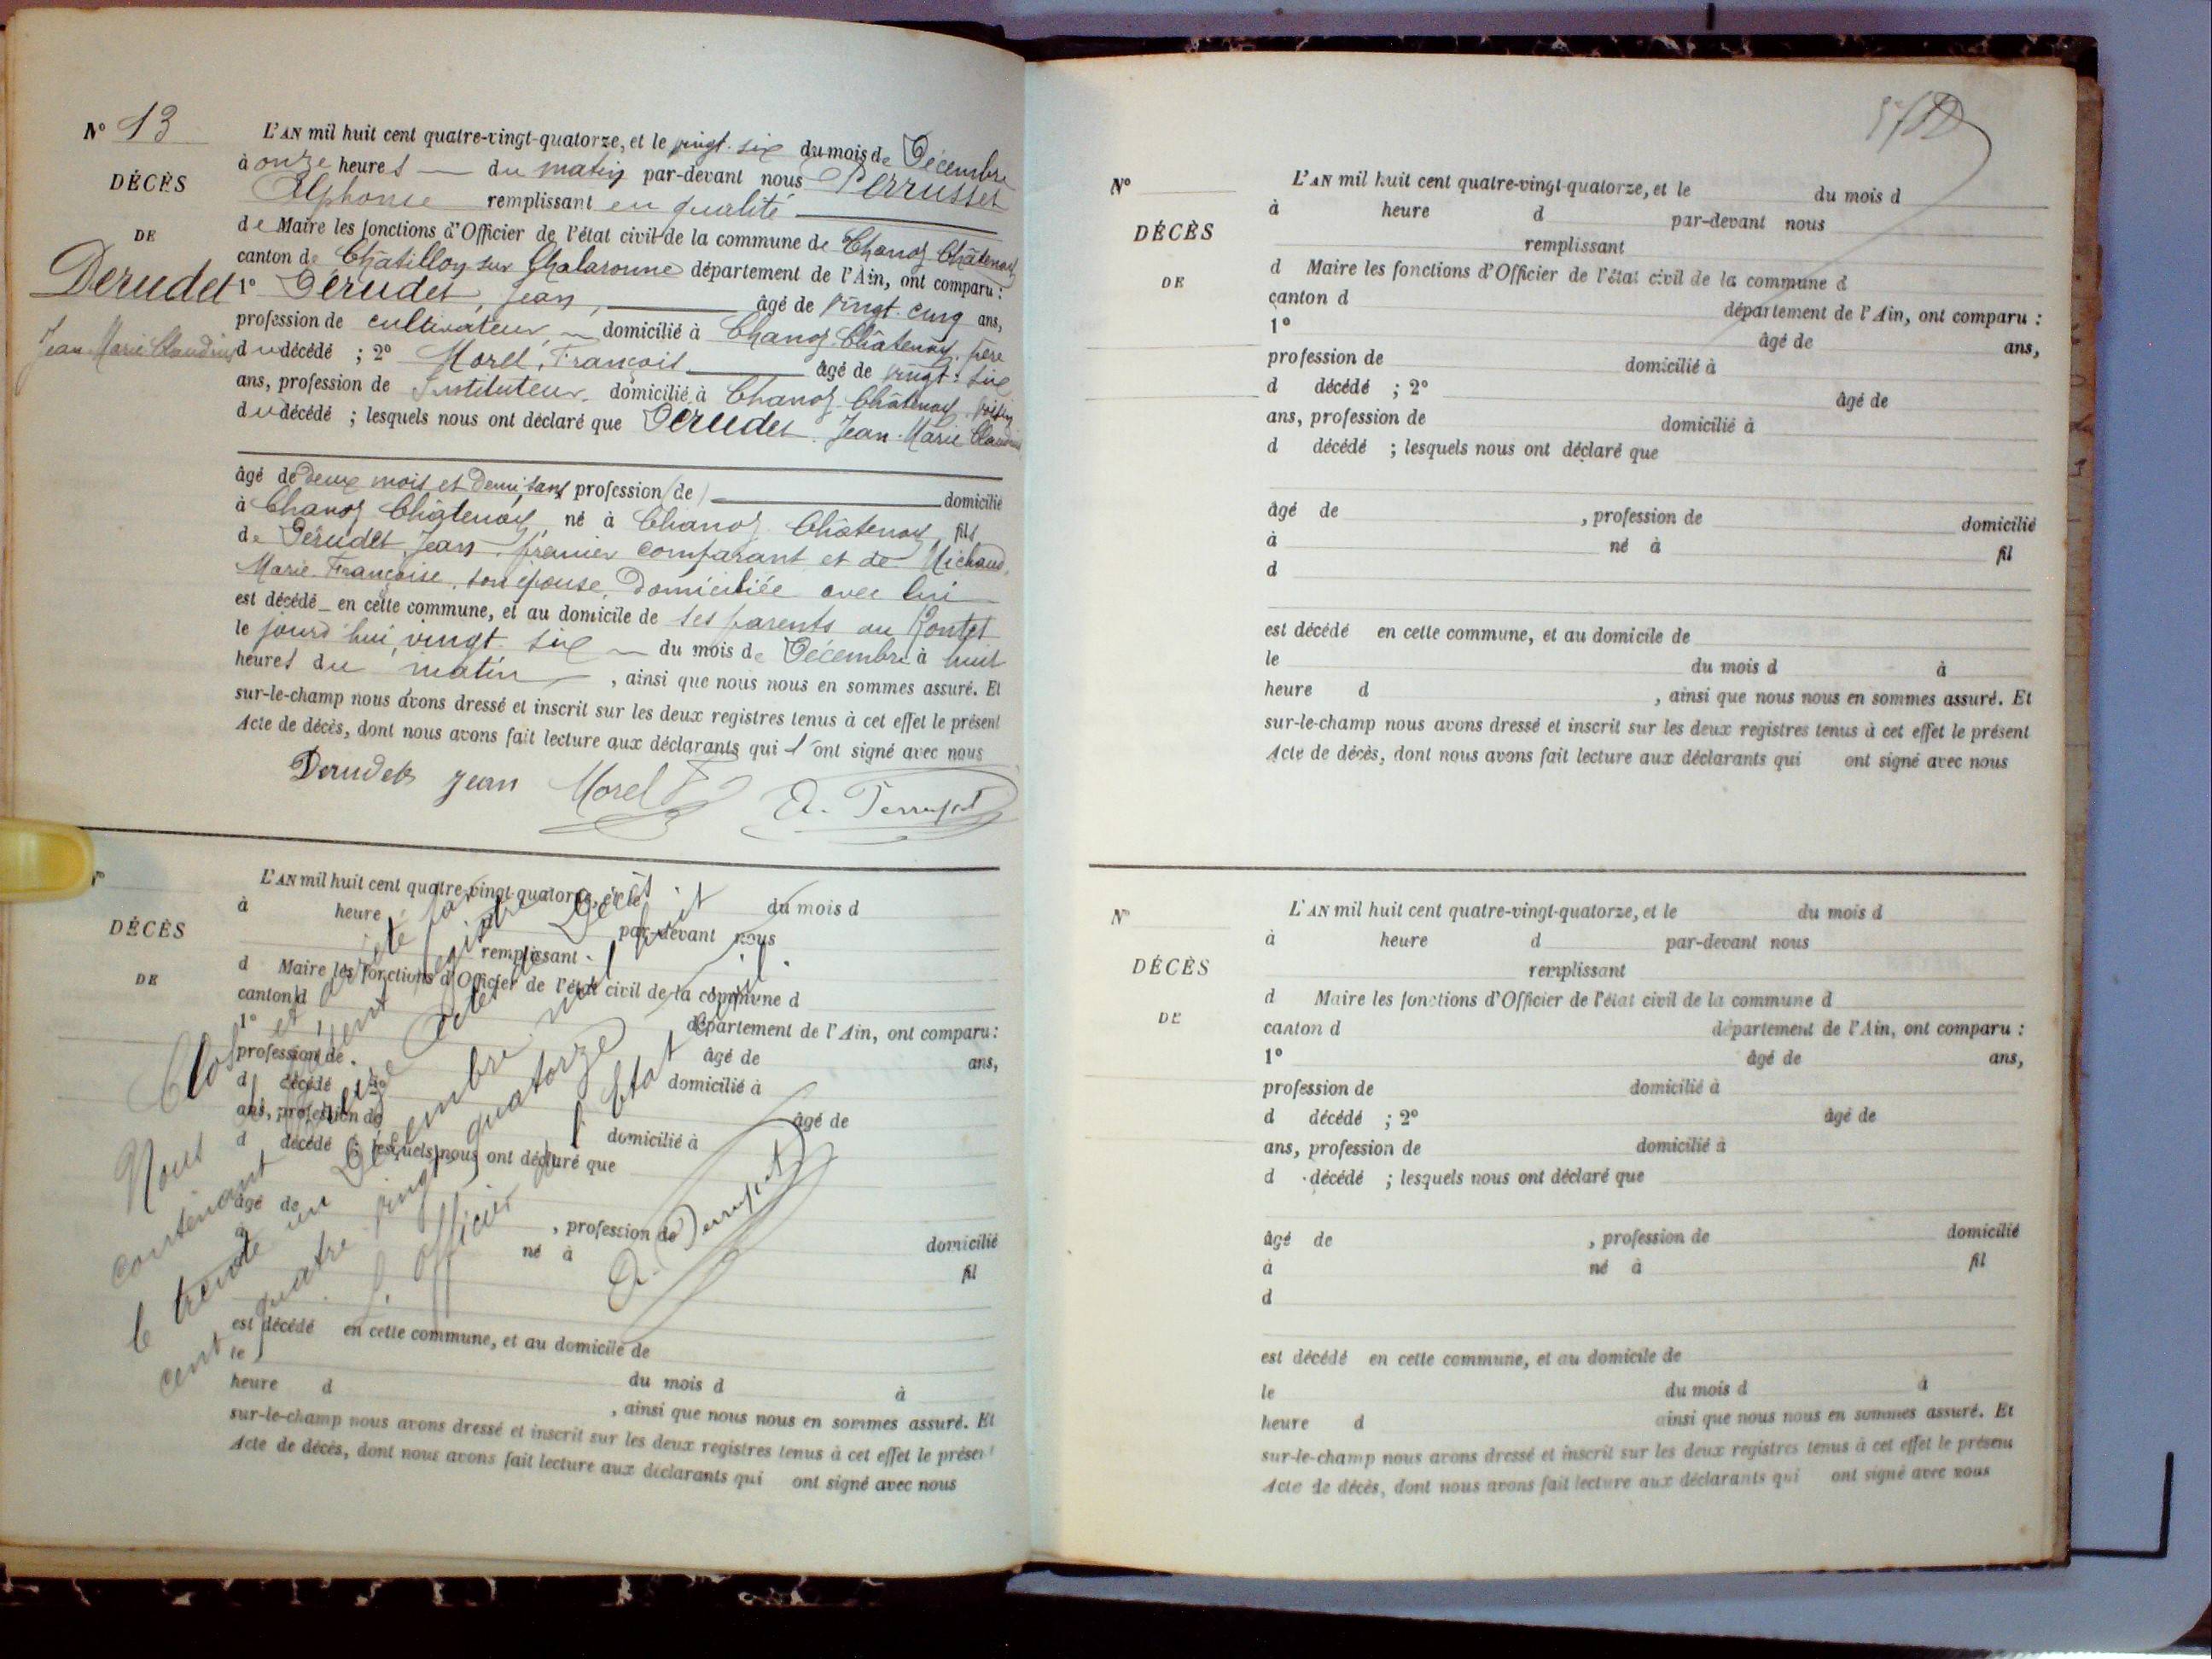 N° 13
DÉCÈS
DE
Derudet
Jean Marie Claudius
L'AN mil huit cent quatre-vingt-quatorze, et le vingt-six du mois de Décembre
à onze heures — du matin par-devant nous Perrusset
Alphonse remplissant en qualité
de Maire les fonctions d'Officier de l'état civil de la commune de Chanoz Châtenay
canton de Châtillon sur Chalaronne département de l'Ain, ont comparu :
1° Dérudet, Jean, âgé de vingt-cinq ans,
profession de cultivateur, domicilié à Chanoz-Châtenay, père
du décédé ; 2° Morel, François âgé de vingt-six
ans, profession de Instituteur, domicilié à Chanoz Châtenay, voisin
du décédé ; lesquels nous ont déclaré que Dérudet Jean-Marie Claudius
âgé de deux mois et demi, sans profession (de) domicilié
à Chanoz Châtenay, né à Chanoz Châtenay fils
de Dérudet Jean, premier comparant et de Michaud,
Marie-Françoise, son épouse, domiciliée avec lui
est décédé en cette commune, et au domicile de ses parents au Pontet
le jourd'hui, vingt-six du mois de Décembre à huit
heures du matin, ainsi que nous nous en sommes assuré. Et
sur-le-champ nous avons dressé et inscrit sur les deux registres tenus à cet effet le présent
Acte de décès, dont nous avons fait lecture aux déclarants qui l'ont signé avec nous
Derudet Jean Morel F A. Perrusset
N°
DÉCÈS
DE
L'AN mil huit cent quatre-vingt-quatorze, et le du mois d
à heure d par-devant nous
remplissant
d Maire les fonctions d'Officier de l'état civil de la commune d
canton d département de l'Ain, ont comparu :
1° âgé de ans,
profession de domicilié à
d décédé ; 2° âgé de
ans, profession de domicilié à
d décédé ; lesquels nous ont déclaré que
âgé de , profession de domicilié
à né à fil
d
est décédé en cette commune, et au domicile de
le du mois d à
heure d , ainsi que nous nous en sommes assuré. Et
sur-le-champ nous avons dressé et inscrit sur les deux registres tenus à cet effet le présent
Acte de décès, dont nous avons fait lecture aux déclarants qui ont signé avec nous
Clos et arrêté par
Nous le présent registre
contenant treize actes de Décès
le trente un Décembre mil huit
cent quatre vingt quatorze
L'Officier de l'Etat Civil.
A. Perrusset
N°
DÉCÈS
DE
L'AN mil huit cent quatre-vingt-quatorze, et le du mois d
à heure d par-devant nous
remplissant
d Maire les fonctions d'Officier de l'état civil de la commune d
canton d département de l'Ain, ont comparu :
1° âgé de ans,
profession de domicilié à
d décédé ; 2° âgé de
ans, profession de domicilié à
d décédé ; lesquels nous ont déclaré que
âgé de , profession de domicilié
à né à fil
d
est décédé en cette commune, et au domicile de
le du mois d à
heure d , ainsi que nous nous en sommes assuré. Et
sur-le-champ nous avons dressé et inscrit sur les deux registres tenus à cet effet le présent
Acte de décès, dont nous avons fait lecture aux déclarants qui ont signé avec nous
N°
DÉCÈS
DE
L'AN mil huit cent quatre-vingt-quatorze, et le du mois d
à heure d par-devant nous
remplissant
d Maire les fonctions d'Officier de l'état civil de la commune d
canton d département de l'Ain, ont comparu :
1° âgé de ans,
profession de domicilié à
d décédé ; 2° âgé de
ans, profession de domicilié à
d décédé ; lesquels nous ont déclaré que
âgé de , profession de domicilié
à né à fil
d
est décédé en cette commune, et au domicile de
le du mois d à
heure d ainsi que nous nous en sommes assuré. Et
sur-le-champ nous avons dressé et inscrit sur les deux registres tenus à cet effet le présent
Acte de décès, dont nous avons fait lecture aux déclarants qui ont signé avec nous